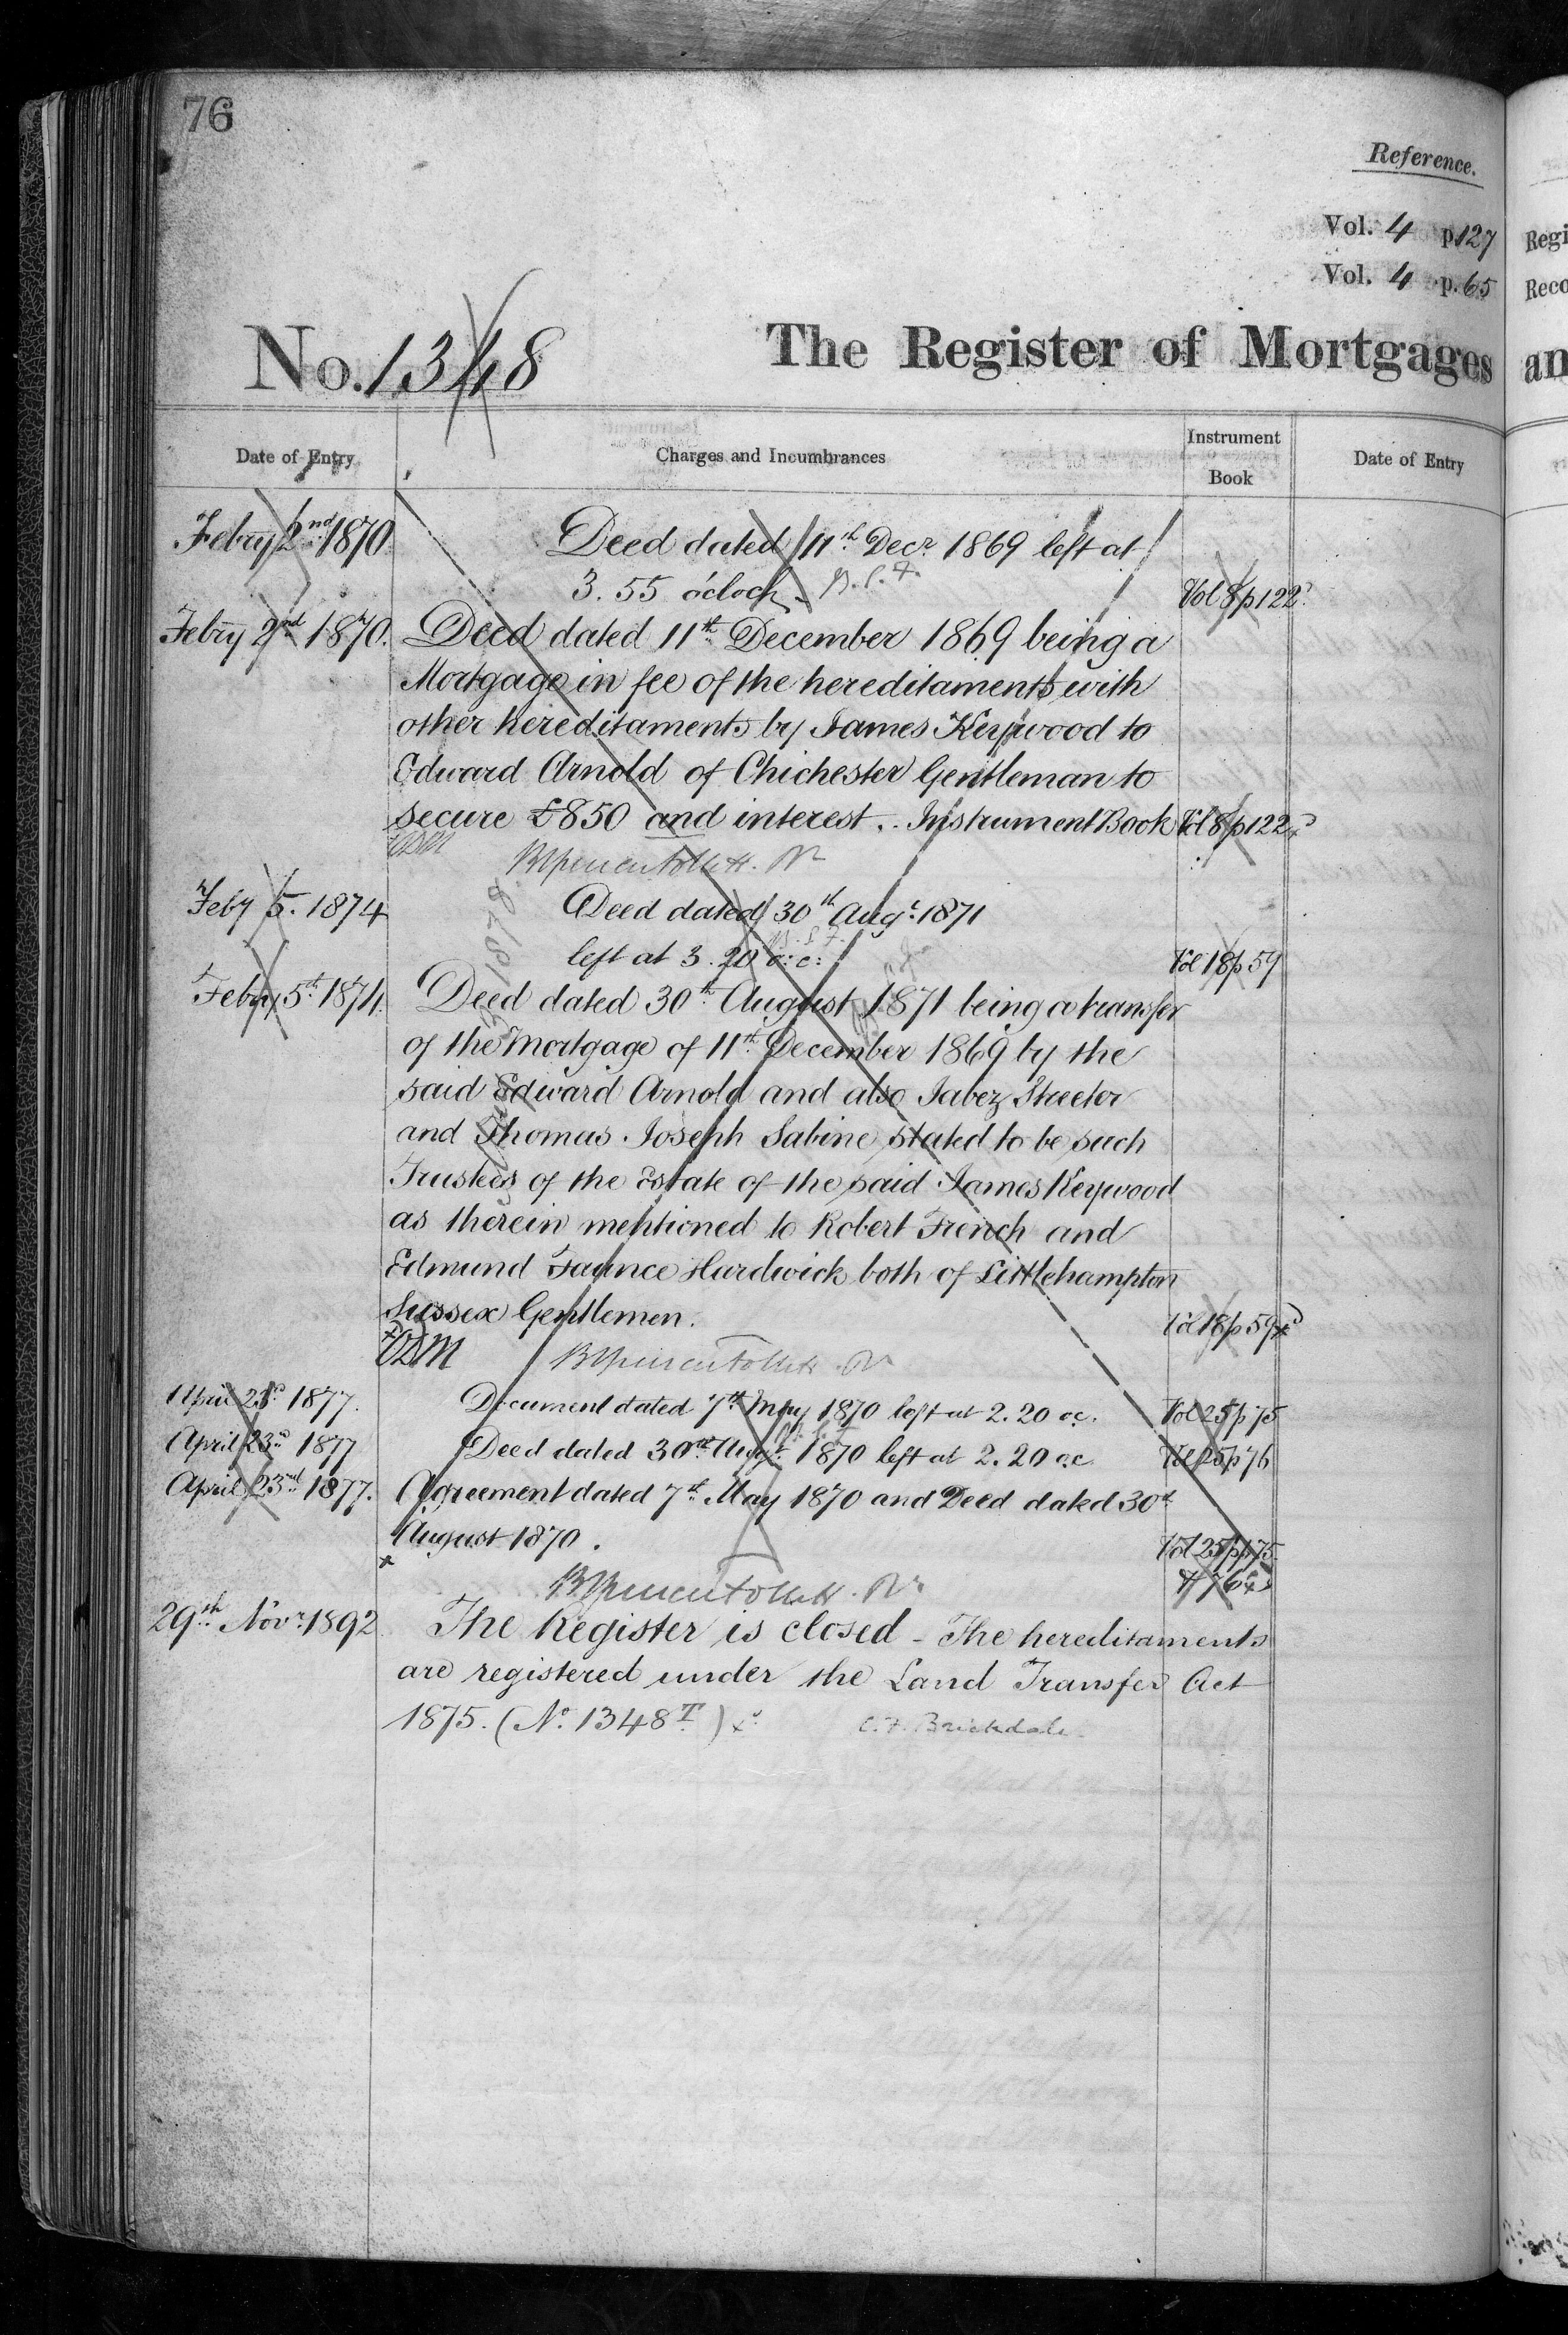 76
Reference.
Vol. 4 p. 127
Vol. 4 p. 65
No. 1348
The Register of Mortgages
Date of Entry
Charges and Incumbrances
Instrument Book
Date of Entry
Febry 2nd 1870 Deed dated 11th Decr 1869 left at
3. 55 o'clock B.S.F. Vol 8 p 122
Febry 2nd 1870. Deed dated 11th December 1869 being a
Mortgage in fee of the hereditaments with
other hereditaments by James Keywood to
Edward Arnold of Chichester Gentleman to
secure £850 and interest .. Instrument Book Vol 8 p 122
Feby 5. 1874 Deed dated 30th Augt 1871
left at 3. 20 o:c: Vol 18 p 59
Febry 5th 1874. Deed dated 30th August 1871 being a transfer
of the Mortgage of 11th December 1869 by the
said Edward Arnold and also Jabez Skeeter
and Thomas Joseph Sabine stated to be such
Trustees of the Estate of the said James Keywood
as therein mentioned to Robert French and
Edmund Faunce Hardwick both of Littlehampton
Sussex Gentlemen. Vol 18 p 59
April 23d 1877. Document dated 7th May 1870 left at 2. 20 oc. Vol 25 p 75
April 23d 1877 Deed dated 30th Augt 1870 left at 2. 20 oc Vol 25 p 76
April 23rd 1877. Agreement dated 7th May 1870 and Deed dated 30th
August 1870. Vol 25 pp 75
& 76
29th Novr 1892 The Register is closed - The hereditaments
are registered under the Land Transfer Act
1875. (No. 1348T) C. F. Brickdale
Regi
Reco
an